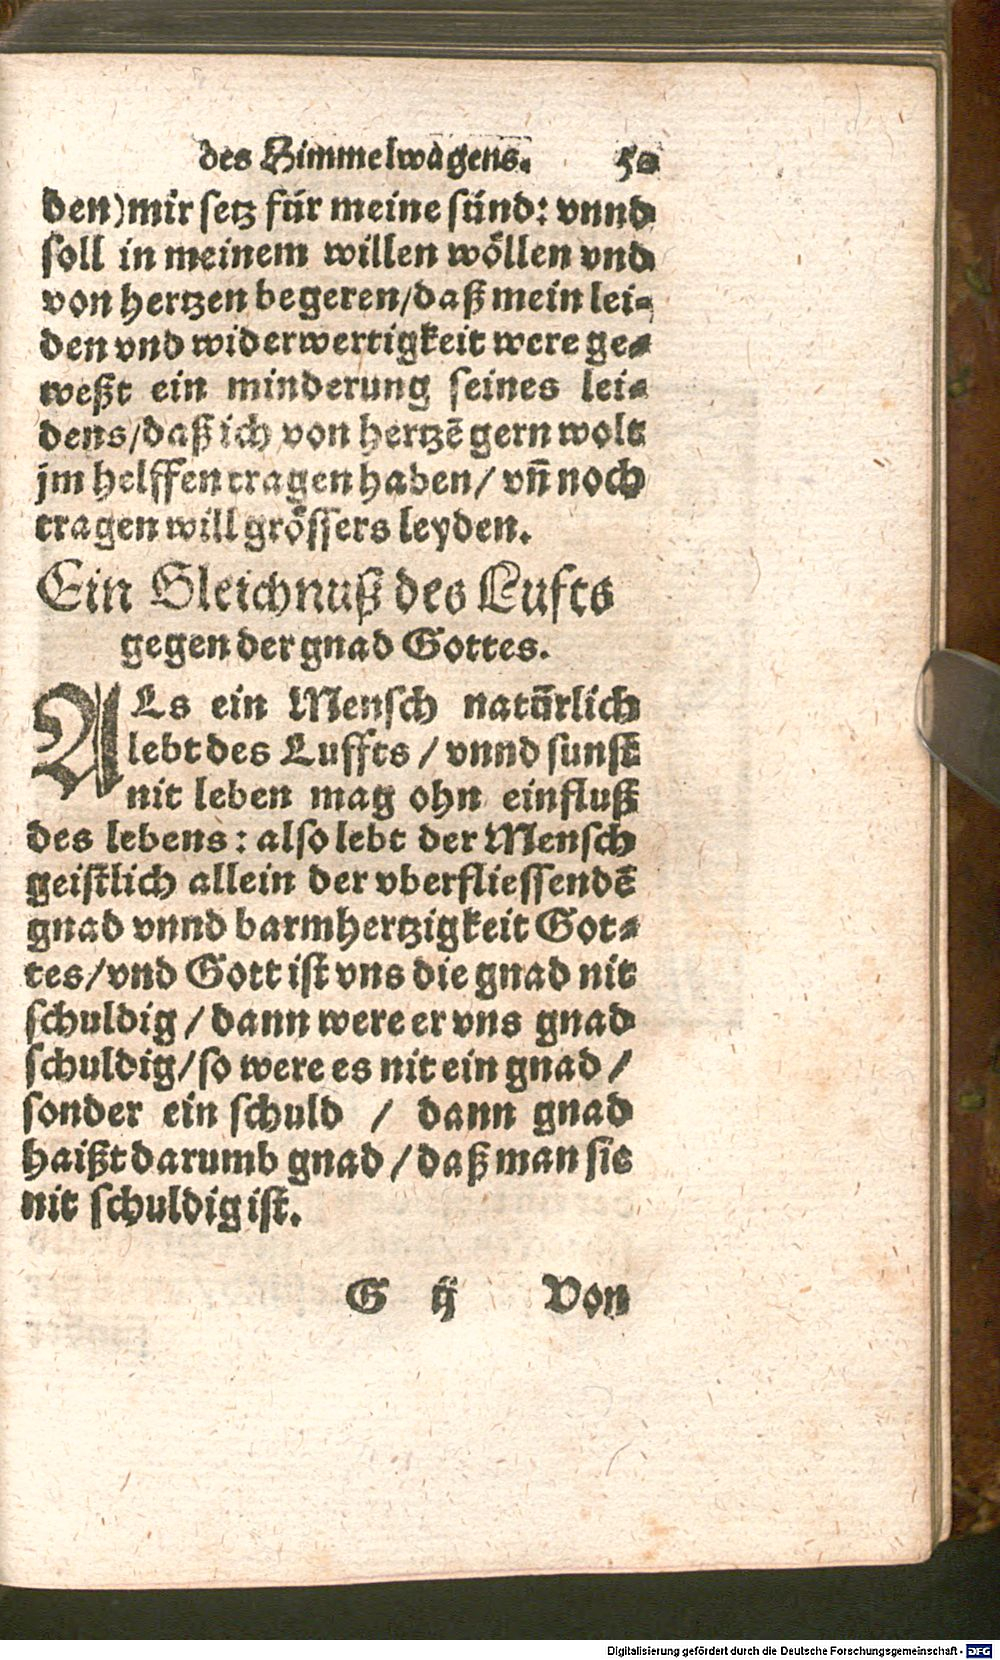 des Himmelwagens. 50
den) mir setz für meine sünd: vnnd
soll in meinem willen wöllen vnd
von hertzen begeren/ daß mein lei-
den vnd widerwertigkeit were ge-
weßt ein minderung seines lei-
dens/ daß ich von hertzẽ gern wolt
jm helffen tragen haben/ vñ noch
tragen will grössers leyden.
Ein Gleichnuß des Lufts
gegen der gnad Gottes.
ALs ein Mensch natürlich
lebt des Luffts / vnnd sunst
nit leben mag ohn einfluß
des lebens: also lebt der Mensch
geistlich allein der vberfliessendẽ
gnad vnnd barmhertzigkeit Got-
tes/ vnd Gott ist vns die gnad nit
schuldig / dann were er vns gnad
schuldig/ so were es nit ein gnad /
sonder ein schuld / dann gnad
haißt darumb gnad / daß man sie
nit schuldig ist.
G ij Von
Digitalisierung gefördert durch die Deutsche Forschungsgemeinschaft - DFG